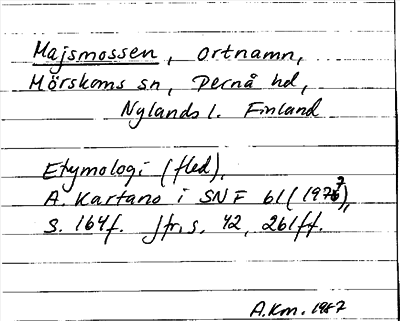 Majsmossen, ortnamn,
Mörskoms sn, Pernå hd,
Nylands l. Finland
Etymologi (fled),
A. Kartano i SNF 61 (1977),
s. 164f. Jfr s. 42, 261ff.
A.Km. 1987